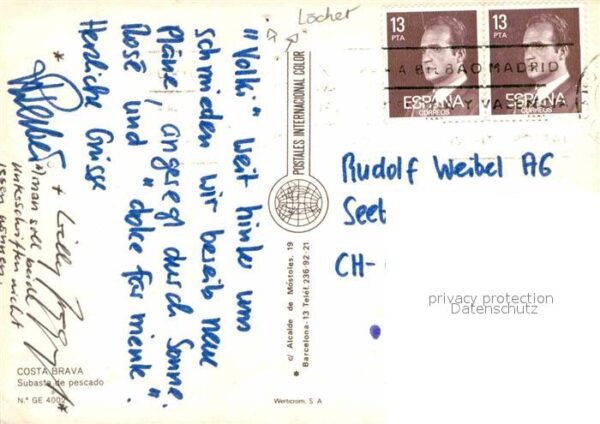 Löcher
"Volki" weit hinter uns
schmieden wir bereits neue
Pläne, angeregt durch Sonne,
Rosé und "dolce far niente".
Herzliche Grüsse
+ Lilly
*) man soll beide
Unterschriften nicht
lesen können
COSTA BRAVA
Subasta de pescado
N.º GE 4002
POSTALES INTERNACIONAL COLOR
c/ Alcalde de Móstoles, 19
Barcelona-13 Teléf. 236-92-21
Werticrom, S. A
13
PTA
ESPAÑA
CORREOS
13
PTA
ESPAÑA
CORREOS
A BILBAO MADRID
Y VALENCIA
Rudolf Weibel AG
Seet
CH-
privacy protection
Datenschutz